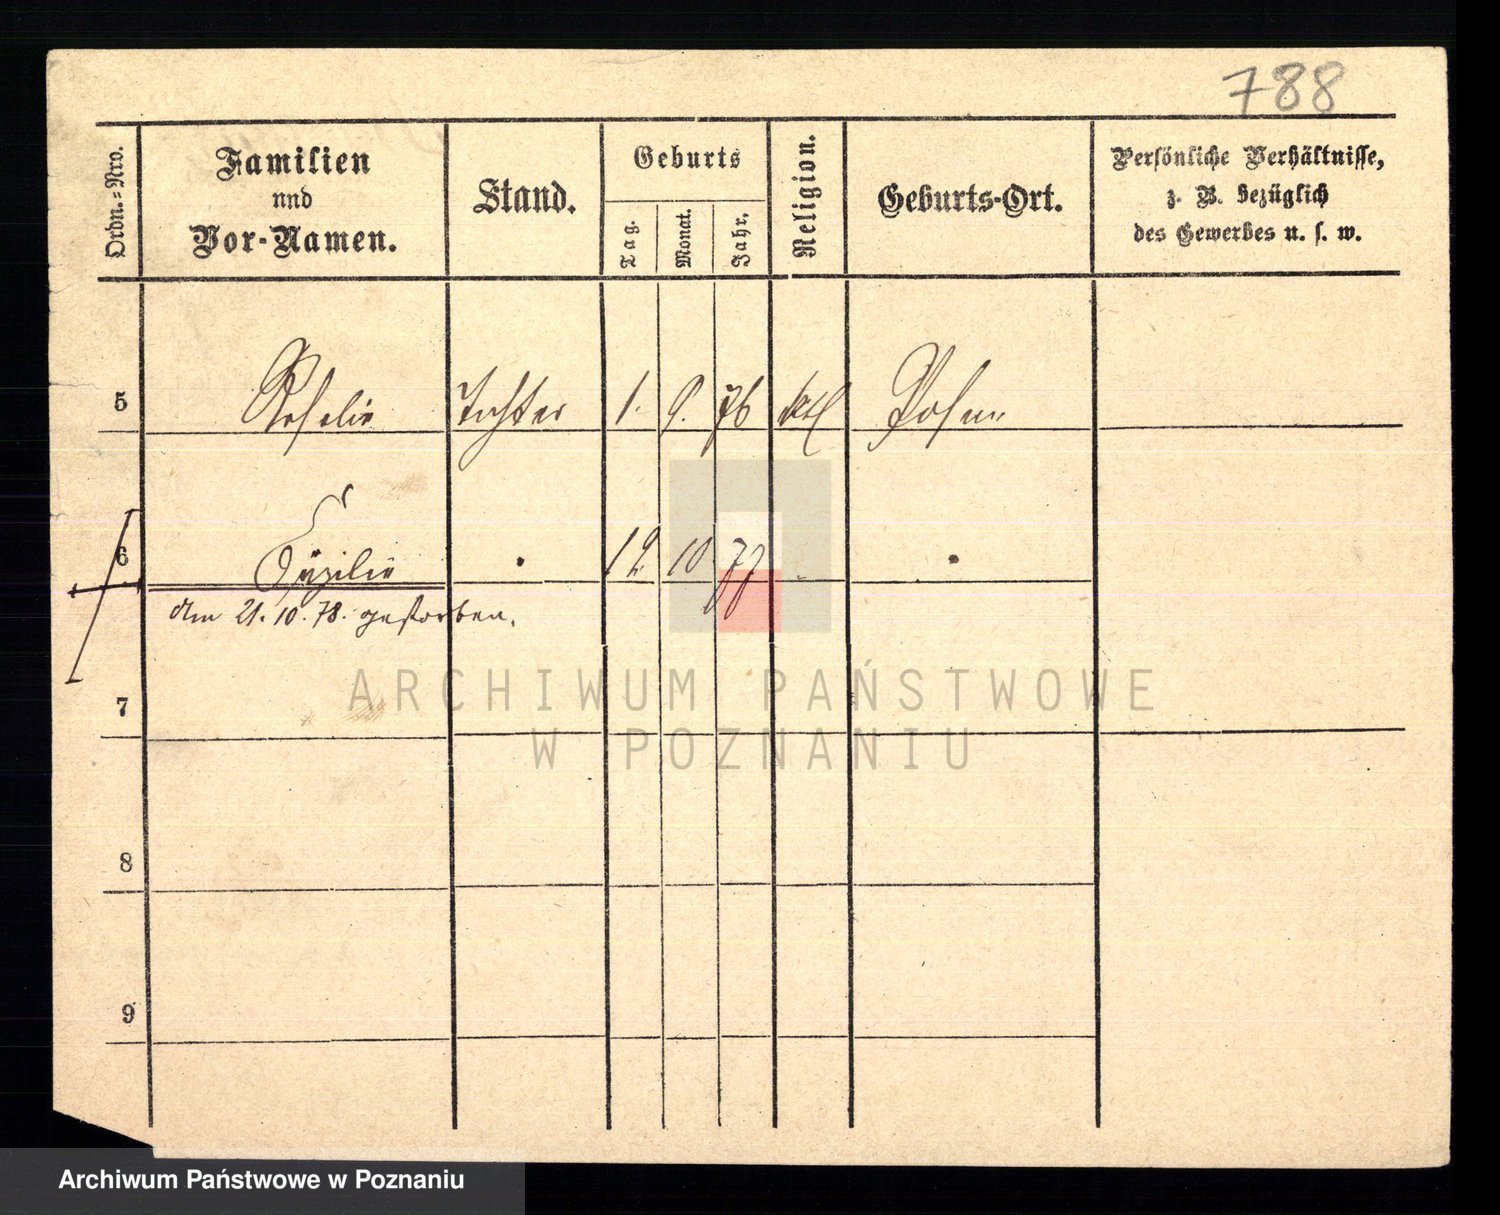 788
Ordn.-Nro.
Familien
und
Vor-Namen.
Stand.
Geburts
Tag.
Monat.
Jahr.
Religion.
Geburts-Ort.
Persönliche Verhältnisse,
z. B. bezüglich
des Gewerbes u. s. w.
5 Rosalie Tochter 1. 9. 76 kth Posen
6 Cäzilie 12 10 77
am 21. 10. 78. gestorben.
7
8
9
ARCHIWUM PAŃSTWOWE
W POZNANIU
Archiwum Państwowe w Poznaniu